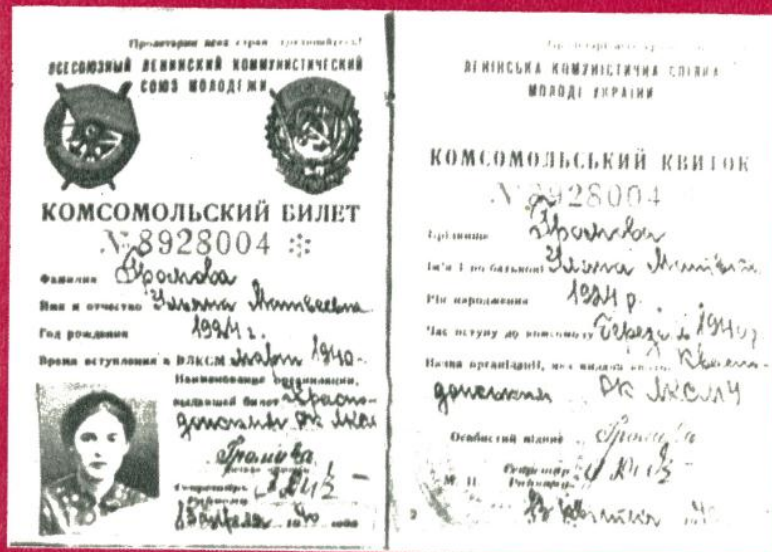 Пролетарии всех стран, соединяйтесь!
ВСЕСОЮЗНЫЙ ЛЕНИНСКИЙ КОММУНИСТИЧЕСКИЙ
СОЮЗ МОЛОДЕЖИ
КОМСОМОЛЬСКИЙ БИЛЕТ
№ 8928004
Фамилия Громова
Имя и отчество Ульяна Матвеевна
Год рождения 1924 г.
Время вступления в ВЛКСМ март 1940
Наименование организации,
выдавшей билет Красно-
донским РК ЛКСМ
Громова
Секретарь
13 апреля 1940
ЛЕНІНСЬКА КОМУНІСТИЧНА СПІЛКА
МОЛОДІ УКРАЇНИ
КОМСОМОЛЬСЬКИЙ КВИТОК
№ 8928004
Прізвище Громова
Ім'я і по батькові Уляна
Рік народження 1924 р.
Час вступу до комсомолу березень 1940 р.
Назва організації, яка видала квиток
РК ЛКСМУ
Особистий підпис Громова
М. П. Секретар
13 квітня
2